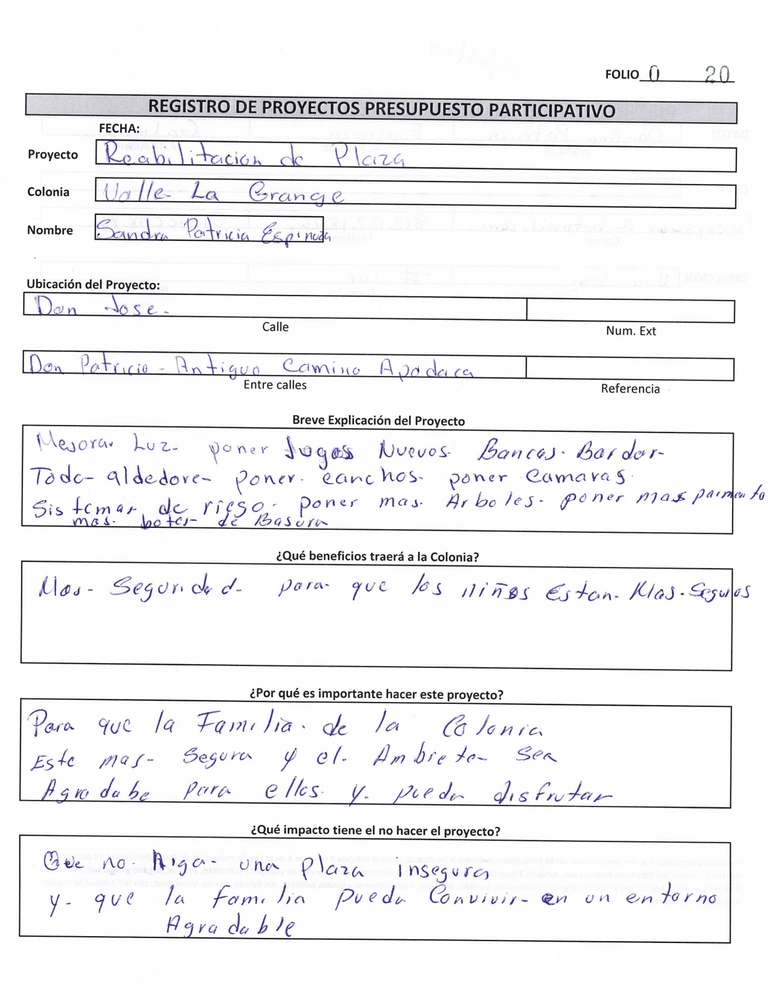 FOLIO 0 20
REGISTRO DE PROYECTOS PRESUPUESTO PARTICIPATIVO
FECHA:
Proyecto Reabilitacion de Plaza
Colonia Valle La Grange
Nombre Sandra Patricia Espinoza
Ubicación del Proyecto:
Don Jose-
Calle Num. Ext
Don Patricio - Antiguo Camino Apodaca
Entre calles Referencia
Breve Explicación del Proyecto
Mejorar Luz- poner Jugos Nuevos Bancas- Bardar-
Todo- aldedore- poner- canchas- poner Camaras
Sistemar de riego- poner mas- Arboles- poner mas
mas- botes- de Basura
¿Qué beneficios traerá a la Colonia?
Mas- Seguridad- para- que los niños Estan- Mas- Seguros
¿Por qué es importante hacer este proyecto?
Para que la Familia- de la Colonia
Este mas- Segura y el- Ambiete- Sea
Agradabe para ellos- y- pueda disfrutar
¿Qué impacto tiene el no hacer el proyecto?
Que no- Aiga- una plaza insegura
y- que la familia pueda Convivir- en un entorno
Agradable